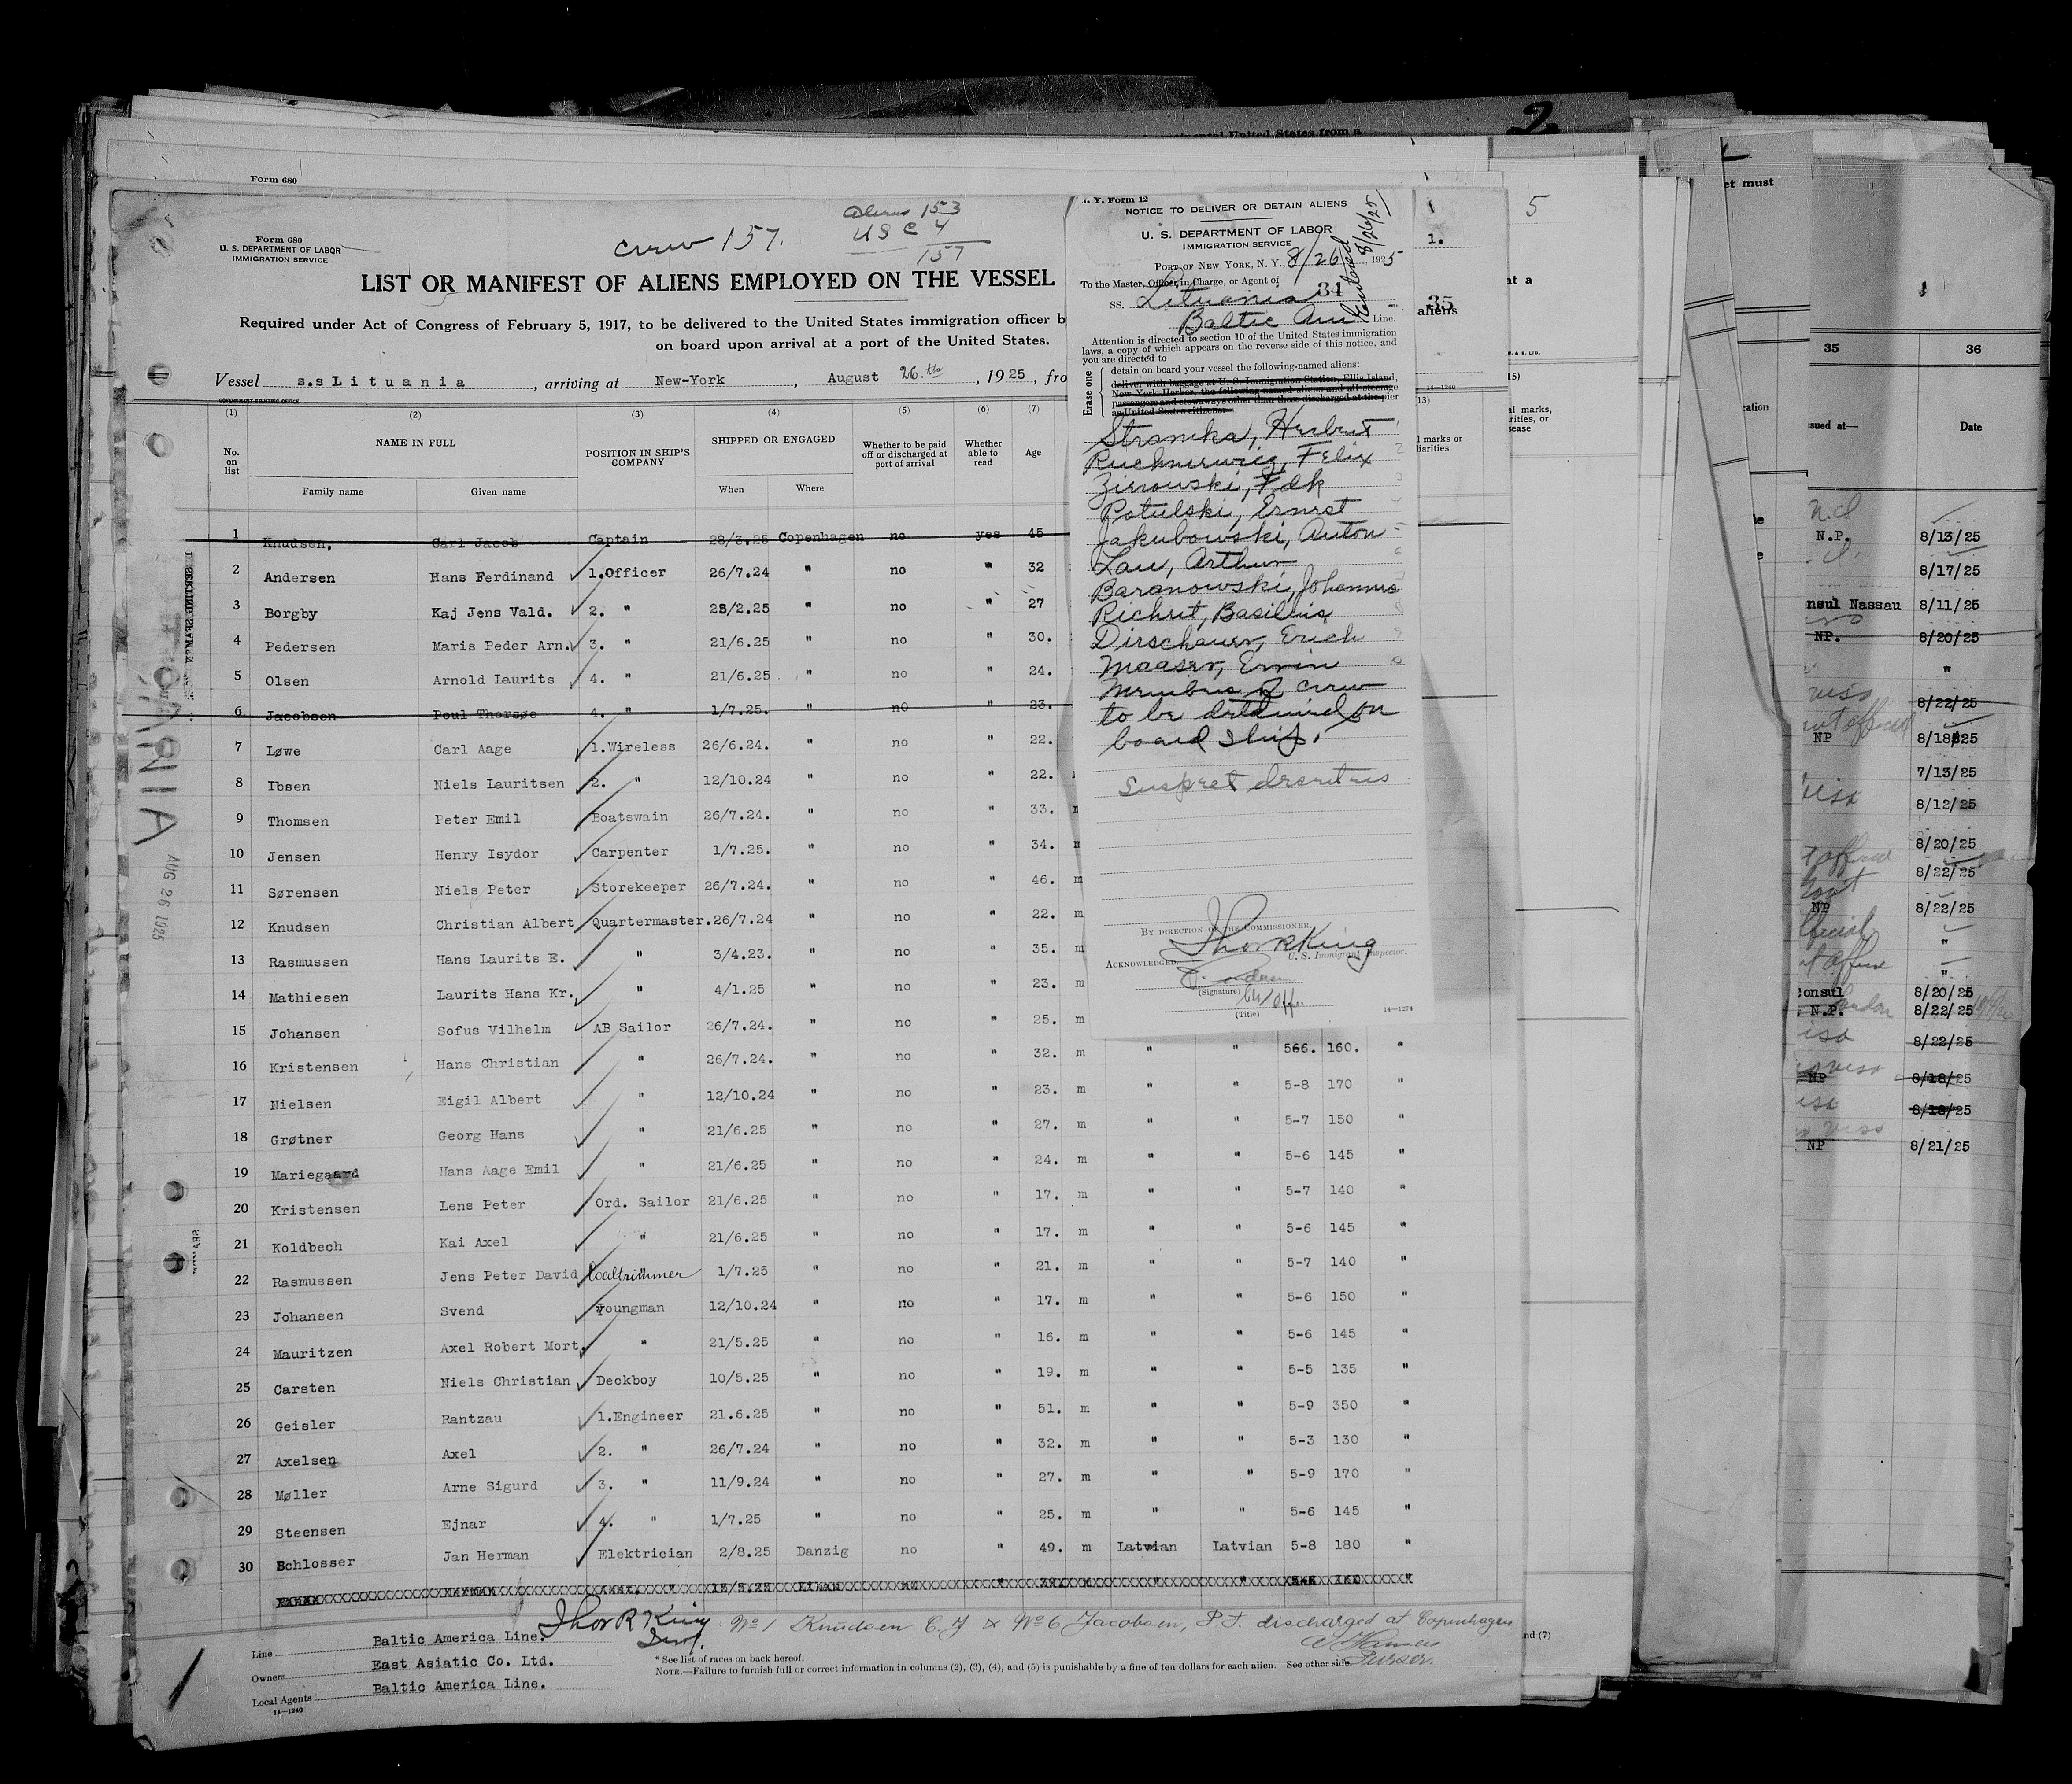 Form 680
Form 680
U. S. DEPARTMENT OF LABOR
IMMIGRATION SERVICE
crew 157.
Aliens 153
USC 4
157
LIST OR MANIFEST OF ALIENS EMPLOYED ON THE VESSEL
Required under Act of Congress of February 5, 1917, to be delivered to the United States immigration officer b
on board upon arrival at a port of the United States.
Vessel s.s Lituania, arriving at New-York, August 26.th, 1925, fro
GOVERNMENT PRINTING OFFICE
(1) (2) (3) (4) (5) (6) (7)
No. on list
NAME IN FULL
Family name Given name
POSITION IN SHIP'S COMPANY
SHIPPED OR ENGAGED
When Where
Whether to be paid off or discharged at port of arrival
Whether able to read
Age
1 Knudsen, Carl Jacob Captain 28/3.25 Copenhagen no yes 45
2 Andersen Hans Ferdinand 1.Officer 26/7.24 " no " 32
3 Borgby Kaj Jens Vald. 2. " 28/2.25 " no " 27
4 Pedersen Maris Peder Arn. 3. " 21/6.25 " no " 30.
5 Olsen Arnold Laurits 4. " 21/6.25 " no " 24.
6 Jacobsen Poul Thorsøe 4. " 1/7.25. " no " 23.
7 Løwe Carl Aage 1.Wireless 26/6.24. " no " 22.
8 Ibsen Niels Lauritsen 2. " 12/10.24 " no " 22.
9 Thomsen Peter Emil Boatswain 26/7.24. " no " 33.
10 Jensen Henry Isydor Carpenter 1/7.25. " no " 34. m
11 Sørensen Niels Peter Storekeeper 26/7.24. " no " 46. m
12 Knudsen Christian Albert Quartermaster. 26/7.24 " no " 22. m
13 Rasmussen Hans Laurits E. " 3/4.23. " no " 35. m
14 Mathiesen Laurits Hans Kr. " 4/1.25 " no " 23. m
15 Johansen Sofus Vilhelm AB Sailor 26/7.24. " no " 25. m
16 Kristensen Hans Christian " 26/7.24. " no " 32. m " " 566. 160. "
17 Nielsen Eigil Albert " 12/10.24 " no " 23. m " " 5-8 170 "
18 Grøtner Georg Hans " 21/6.25 " no " 27. m " " 5-7 150 "
19 Mariegaard Hans Aage Emil " 21/6.25 " no " 24. m " " 5-6 145 "
20 Kristensen Lens Peter Ord. Sailor 21/6.25 " no " 17. m " " 5-7 140 "
21 Koldbech Kai Axel " 21/6.25 " no " 17. m " " 5-6 145 "
22 Rasmussen Jens Peter David Coaltrimmer 1/7.25 " no " 21. m " " 5-7 140 "
23 Johansen Svend Youngman 12/10.24 " no " 17. m " " 5-6 150 "
24 Mauritzen Axel Robert Mort. " 21/5.25 " no " 16. m " " 5-6 145 "
25 Carsten Niels Christian Deckboy 10/5.25 " no " 19. m " " 5-5 135 "
26 Geisler Rantzau 1.Engineer 21.6.25 " no " 51. m " " 5-9 350 "
27 Axelsen Axel 2. " 26/7.24 " no " 32. m " " 5-3 130 "
28 Møller Arne Sigurd 3. " 11/9.24 " no " 27. m " " 5-9 170 "
29 Steensen Ejnar 4. " 1/7.25 " no " 25. m " " 5-6 145 "
30 Schlosser Jan Herman Elektrician 2/8.25 Danzig no " 49. m Latvian Latvian 5-8 180 "
Thor R King
Insp.
No 1 Knudsen C. J & No 6 Jacobsen, P. T. discharged at Copenhagen
Purser.
Line Baltic America Line.
Owners East Asiatic Co. Ltd.
Local Agents Baltic America Line.
14—1240
* See list of races on back hereof.
NOTE.—Failure to furnish full or correct information in columns (2), (3), (4), and (5) is punishable by a fine of ten dollars for each alien. See other side.
AUG 26 1925
N. Y. Form 12
NOTICE TO DELIVER OR DETAIN ALIENS
U. S. DEPARTMENT OF LABOR
IMMIGRATION SERVICE
PORT OF NEW YORK, N. Y., 8/26, 1925
8/26/25
To the Master, Officer in Charge, or Agent of
34
SS. Lituania
Baltic Am Line.
Attention is directed to section 10 of the United States immigration
laws, a copy of which appears on the reverse side of this notice, and
you are directed to
Erase one
detain on board your vessel the following-named aliens:
deliver with baggage at U. S. Immigration Station, Ellis Island,
New York Harbor, the following-named aliens and all steerage
passengers and stowaways other than those discharged at the pier
as United States citizens:
Stramka, Herbert
Ruchnerwicz, Felix
Zirrowski, Fdk
Potulski, Ernst
Jakubowski, Anton
Lau, Arthur
Baranowski, Johannes
Richert, Basilius
Dirschauer, Erich
Maaser, Erwin
Members of crew
to be detained on
board ship.
Suspect deserters
BY DIRECTION OF THE COMMISSIONER.
Thor R King
U. S. Immigrant Inspector.
ACKNOWLEDGED:
(Signature)
Ch/Off.
(Title)
14—1274
1.
35
aliens
14—1240
13)
l marks or
liarities
5
at a
(15)
al marks,
rities, or
sease
nd (7)
ntinental United States from a
2.
et must
35 36
cation
ssued at— Date
N.P. 8/13/25
8/17/25
onsul Nassau 8/11/25
NP. 8/20/25
"
8/22/25
NP 8/18/25
7/13/25
8/12/25
8/20/25
8/22/25
NP 8/22/25
"
"
Consul 8/20/25
N.P. London 8/22/25
8/22/25
NP 8/18/25
8/18/25
NP 8/21/25